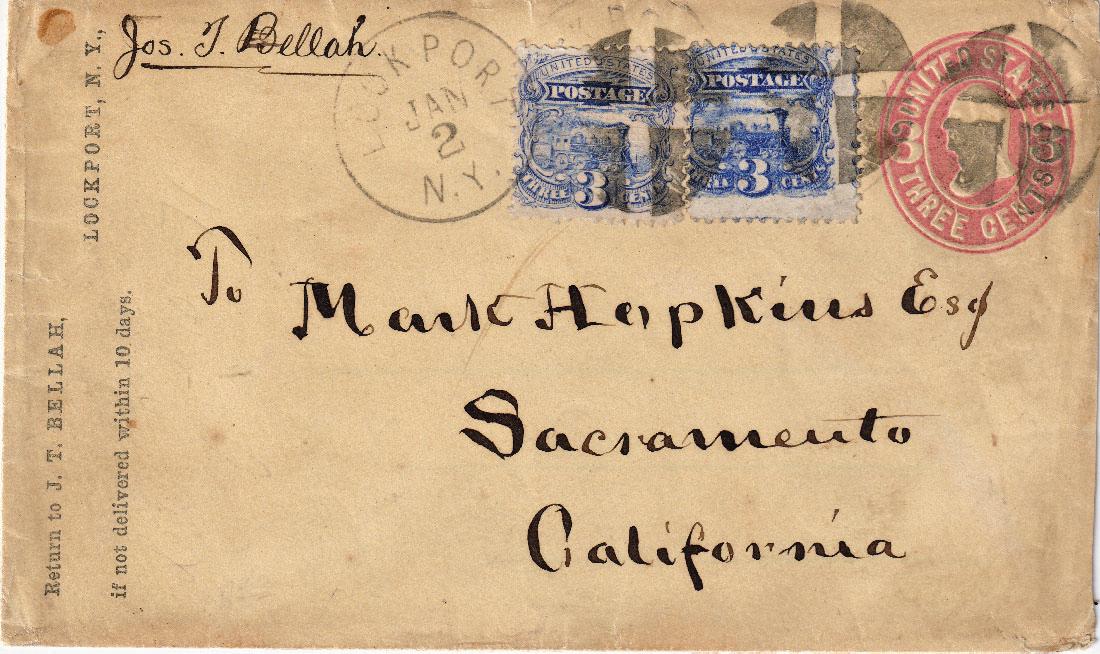 Jos. T. Bellah.
Return to J. T. BELLAH,
LOCKPORT, N. Y.,
if not delivered within 10 days.
LOCKPORT
JAN
2
N.Y.
UNITED STATES
POSTAGE
THREE 3 CENTS
UNITED STATES
POSTAGE
3 CENTS
UNITED STATES
3 3
THREE CENTS
To
Mark Hopkins Esq
Sacramento
California